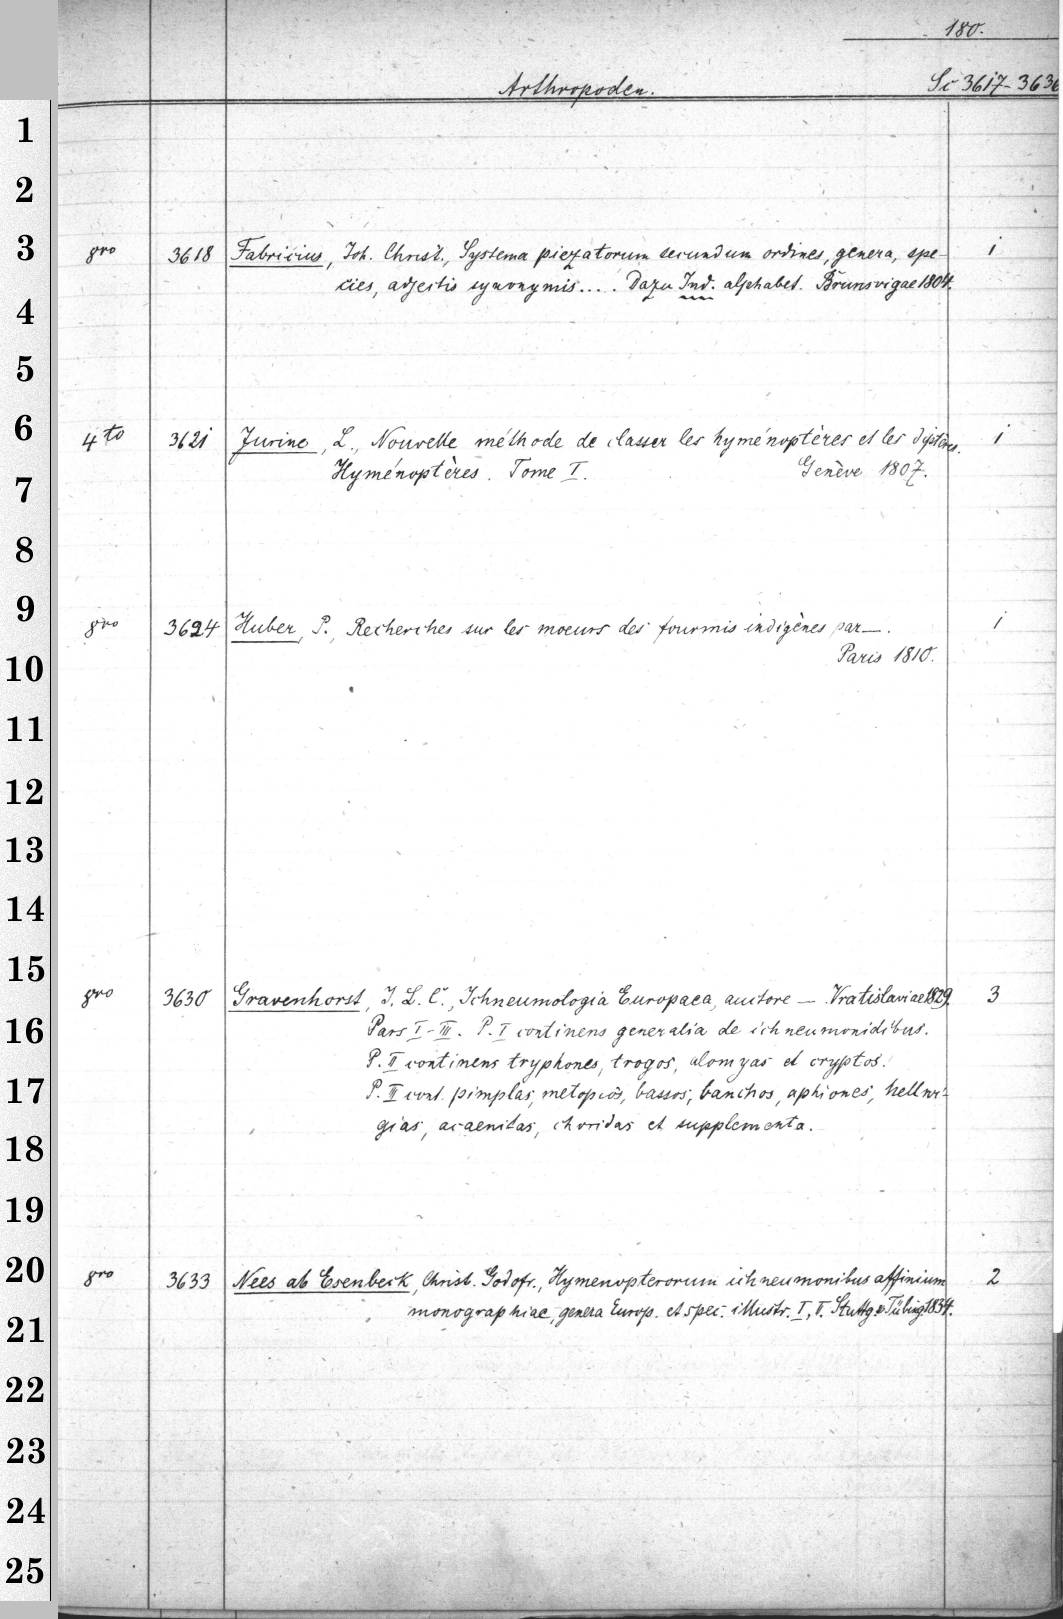 180.
Arthropoden. Sc 3617-3636
1
2
3 8vo 3618 Fabricius, Joh. Christ., Systema piezatorum secundum ordines, genera, spe- 1
cies, adjectis synonymis.... Dazu Ind. alphabet. Brunsvigae 1804.
4
5
6 4to 3621 Jurine, L., Nouvelle méthode de classer les hyménoptères et les diptères. 1
7 Hyménoptères. Tome I. Genève 1807.
8
9 8vo 3624 Huber, P., Recherches sur les moeurs des fourmis indigènes par —. 1
10 Paris 1810.
11
12
13
14
15 8vo 3630 Gravenhorst, J. L. C., Ichneumologia Europaea, auctore — . Vratislaviae 1829. 3
16 Pars I-III. P. I continens generalia de ichneumonidibus.
P. II continens tryphones, trogos, alomyas et cryptos.
17 P. III cont. pimplas, metopios, bassos, banchos, ophiones, hellwi-
gias, acaenitas, choridas et supplementa.
18
19
20 8vo 3633 Nees ab Esenbeck, Christ. Godofr., Hymenopterorum ichneumonibus affinium 2
21 monographiae, genera Europ. et spec. illustr. I, II. Stuttg. & Tübing 1834.
22
23
24
25